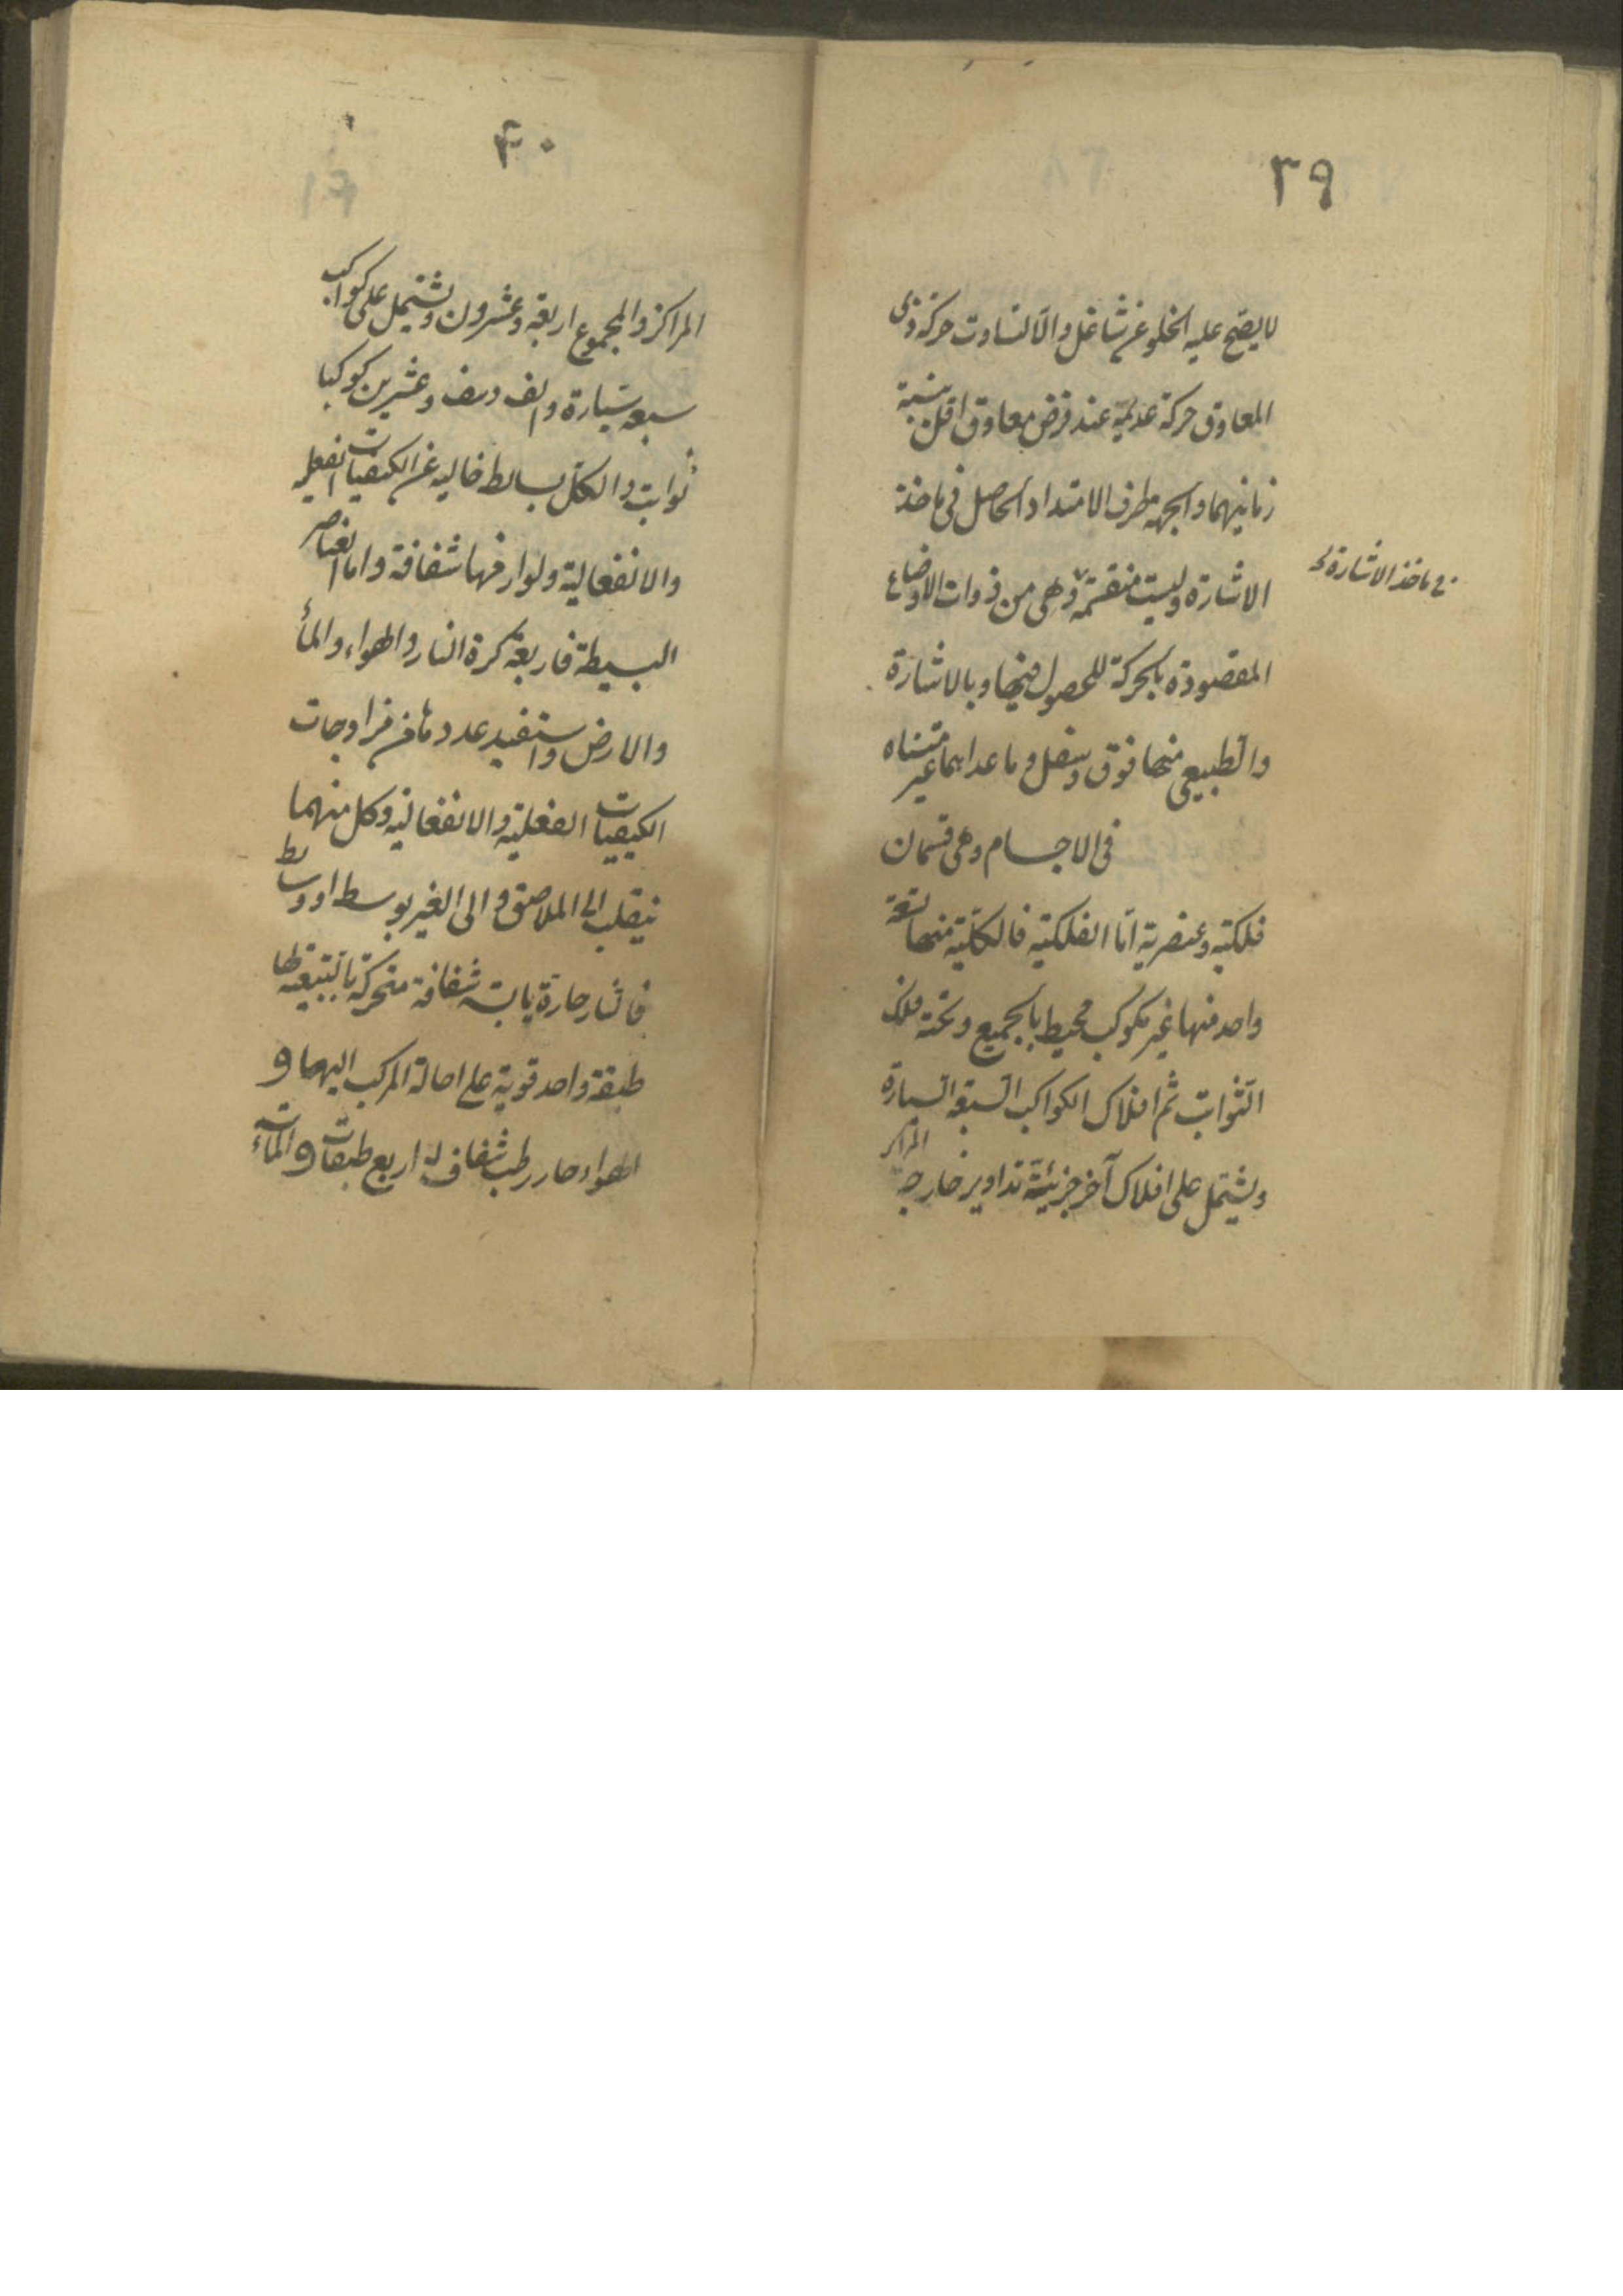 ٣٩
لا يصح عليه الخلو عن شاغل والا لتساوت حركة ذى
المعاوق حركة عديمه عند فرض معاوق اقل بنسبة
زمانيهما والجهه طرف الامتداد الحاصل فى ماخذ
الاشارة وليست منقسمة وهى من ذوات الاوضاع
المقصودة بالحركة للحصول فيها وبالاشارة
والطبيعى منها فوق وسفل وما عداهما غير متناه
فى الاجسام وهى قسمان
فلكية وعنصرية اما الفلكية فالكلية منها تسعة
واحد منها غير مكوكب محيط بالجميع وتحته فلك
الثوابت ثم افلاك الكواكب السبعه السيارة
ويشتمل على افلاك آخر جزئية تداوير خارجة المراكز
فى ماخذ الاشارة
۴۰
المراكز والمجموع اربعة وعشرون ويشتمل على كواكب
سبعه سيارة والف ونيف وعشرين كوكبا
ثوابت والكل بسائط خاليه عن الكيفيات الفعليه
والانفعالية ولوازمها شفافة واما العناصر
البسيطة فاربعة كرة النار والهواء والمأ
والارض واستفيد عددها من مزاوجات
الكيفيات الفعلية والانفعالية وكل منهما
ينقلب الى الملاصق والى الغير بوسط او وسائط
فالنار حارة يابسة شفافة متحركة بالتبعية لها
طبقة واحد قوية على احالة المركب اليها و
الهواء حار رطب شفاف له اربع طبقات والمأ